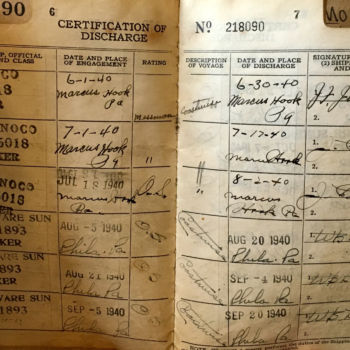 90
6
CERTIFICATION OF
DISCHARGE
P, OFFICIAL
ND CLASS
DATE AND PLACE
OF ENGAGEMENT
RATING
6-1-40
Marcus Hook
Pa
Messman
NOCO
5018
KER
7-1-40
Marcus Hook
Pa
"
NOCO
5018
JUL 18 1940
Marcus Hook
Pa
O.S.
WARE SUN
1893
KER
AUG -5 1940
Phila. Pa
O.S.
WARE SUN
1893
KER
AUG 21 1940
Phila Pa
O.S.
WARE SUN
1893
KER
SEP -5 1940
Phila Pa
7
No
Nº 218090
DESCRIPTION
OF VOYAGE
DATE AND PLACE
OF DISCHARGE
SIGNATUR
(2) SHIPP
AND
Coastwise
6-30-40
Marcus Hook
Pa
2.
7-17-40
Marcus Hook
2.
"
8-2-40
Marcus
Hook Pa
2.
Coastwise
AUG 20 1940
Phila. Pa
2.
Coastwise
SEP -4 1940
Phila Pa
2.
Coastwise
SEP 20 1940
Phila Pa
2.
duties of the Shippi